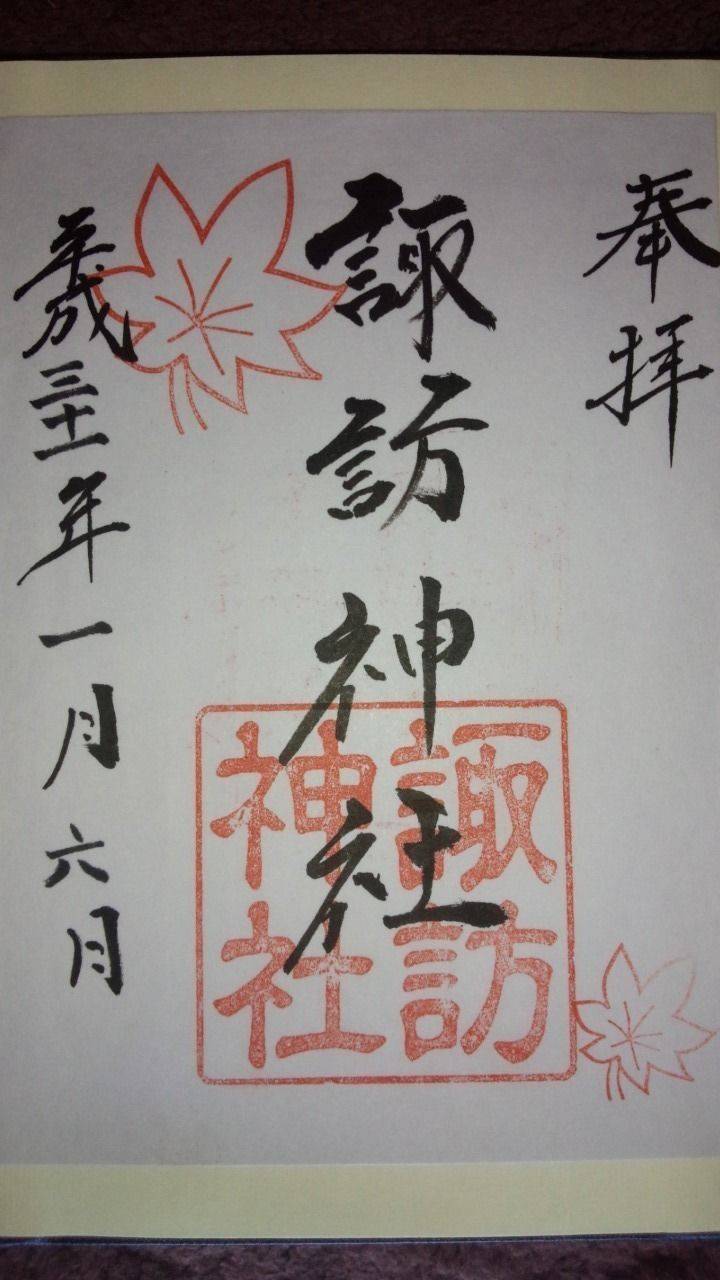 奉拝
諏訪神社
諏訪
神社
平成三十一年一月六日